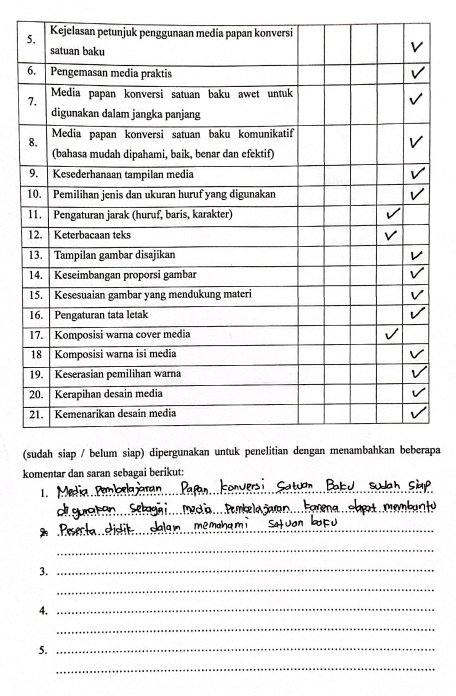 5. Kejelasan petunjuk penggunaan media papan konversi
satuan baku ✓
6. Pengemasan media praktis ✓
7. Media papan konversi satuan baku awet untuk
digunakan dalam jangka panjang ✓
8. Media papan konversi satuan baku komunikatif
(bahasa mudah dipahami, baik, benar dan efektif) ✓
9. Kesederhanaan tampilan media ✓
10. Pemilihan jenis dan ukuran huruf yang digunakan ✓
11. Pengaturan jarak (huruf, baris, karakter) ✓
12. Keterbacaan teks ✓
13. Tampilan gambar disajikan ✓
14. Keseimbangan proporsi gambar ✓
15. Kesesuaian gambar yang mendukung materi ✓
16. Pengaturan tata letak ✓
17. Komposisi warna cover media ✓
18 Komposisi warna isi media ✓
19. Keserasian pemilihan warna ✓
20. Kerapihan desain media ✓
21. Kemenarikan desain media ✓
(sudah siap / belum siap) dipergunakan untuk penelitian dengan menambahkan beberapa
komentar dan saran sebagai berikut:
1. Media Pembelajaran Papan konversi Satuan Baku sudah siap
digunakan sebagai media Pembelajaran karena dapat membantu
2. Peserta didik dalam memahami satuan baku
3.
4.
5.